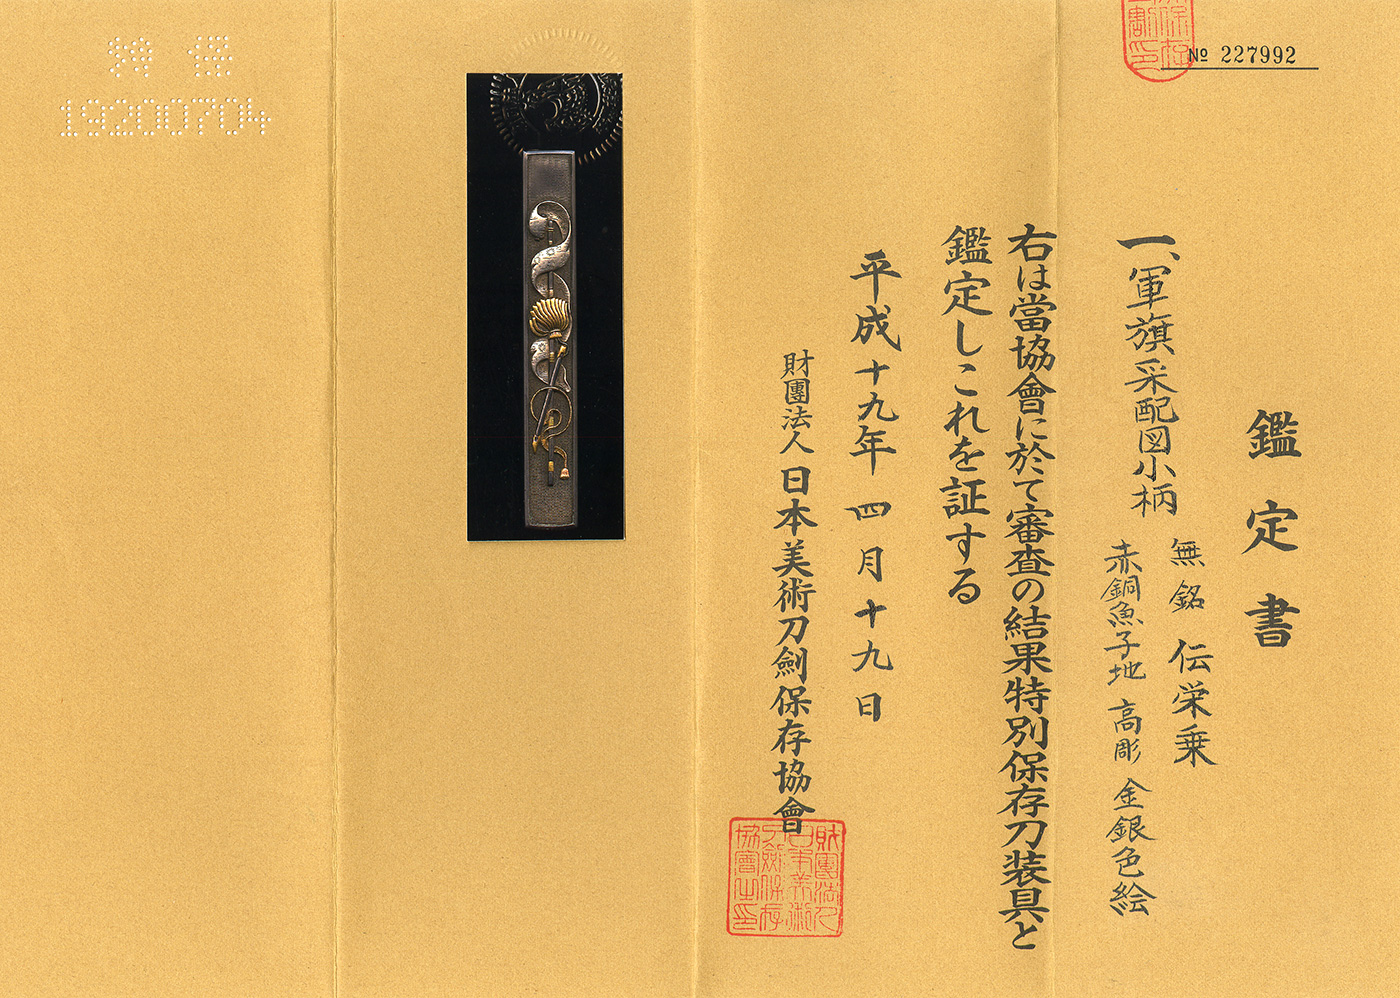 № 227992
鑑定書
一、軍旗采配図小柄
無銘 伝栄乗
赤銅魚子地 高彫 金銀色絵
右は當協會に於て審査の結果特別保存刀装具と
鑑定しこれを証する
平成十九年 四月十九日
財團法人 日本美術刀劍保存協會
財團法人
日本美術
刀劍保存
協會之印
特保
19200704